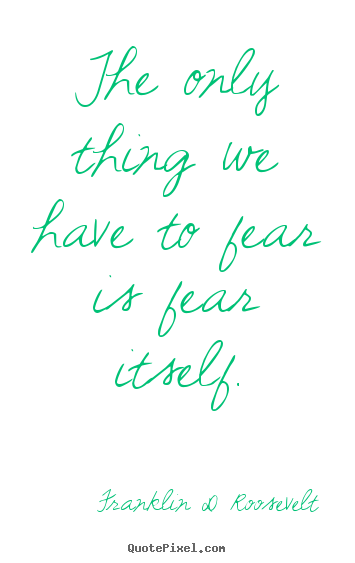 The only
thing we
have to fear
is fear
itself.
Franklin D Roosevelt
QuotePixel.com